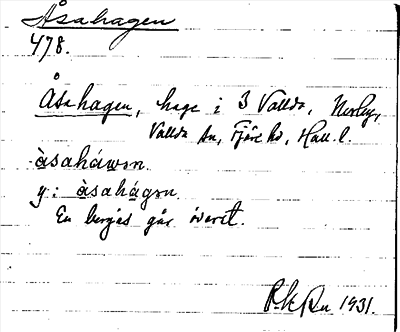 Åsahagen
478.
Åsahagen, hage i 3 Vallda,
Vallda sn, Fjäre hd, Hall. l.
àsaháwən.
y: àsahágən.
En bergås går överet.
1931.